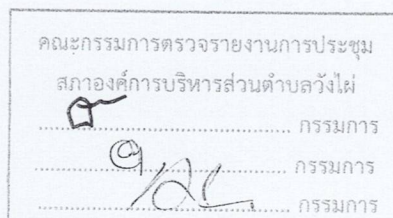 คณะกรรมการตรวจรายงานการประชุม
สภาองค์การบริหารส่วนตำบลวังไผ่
................................ กรรมการ
................................ กรรมการ
................................ กรรมการ